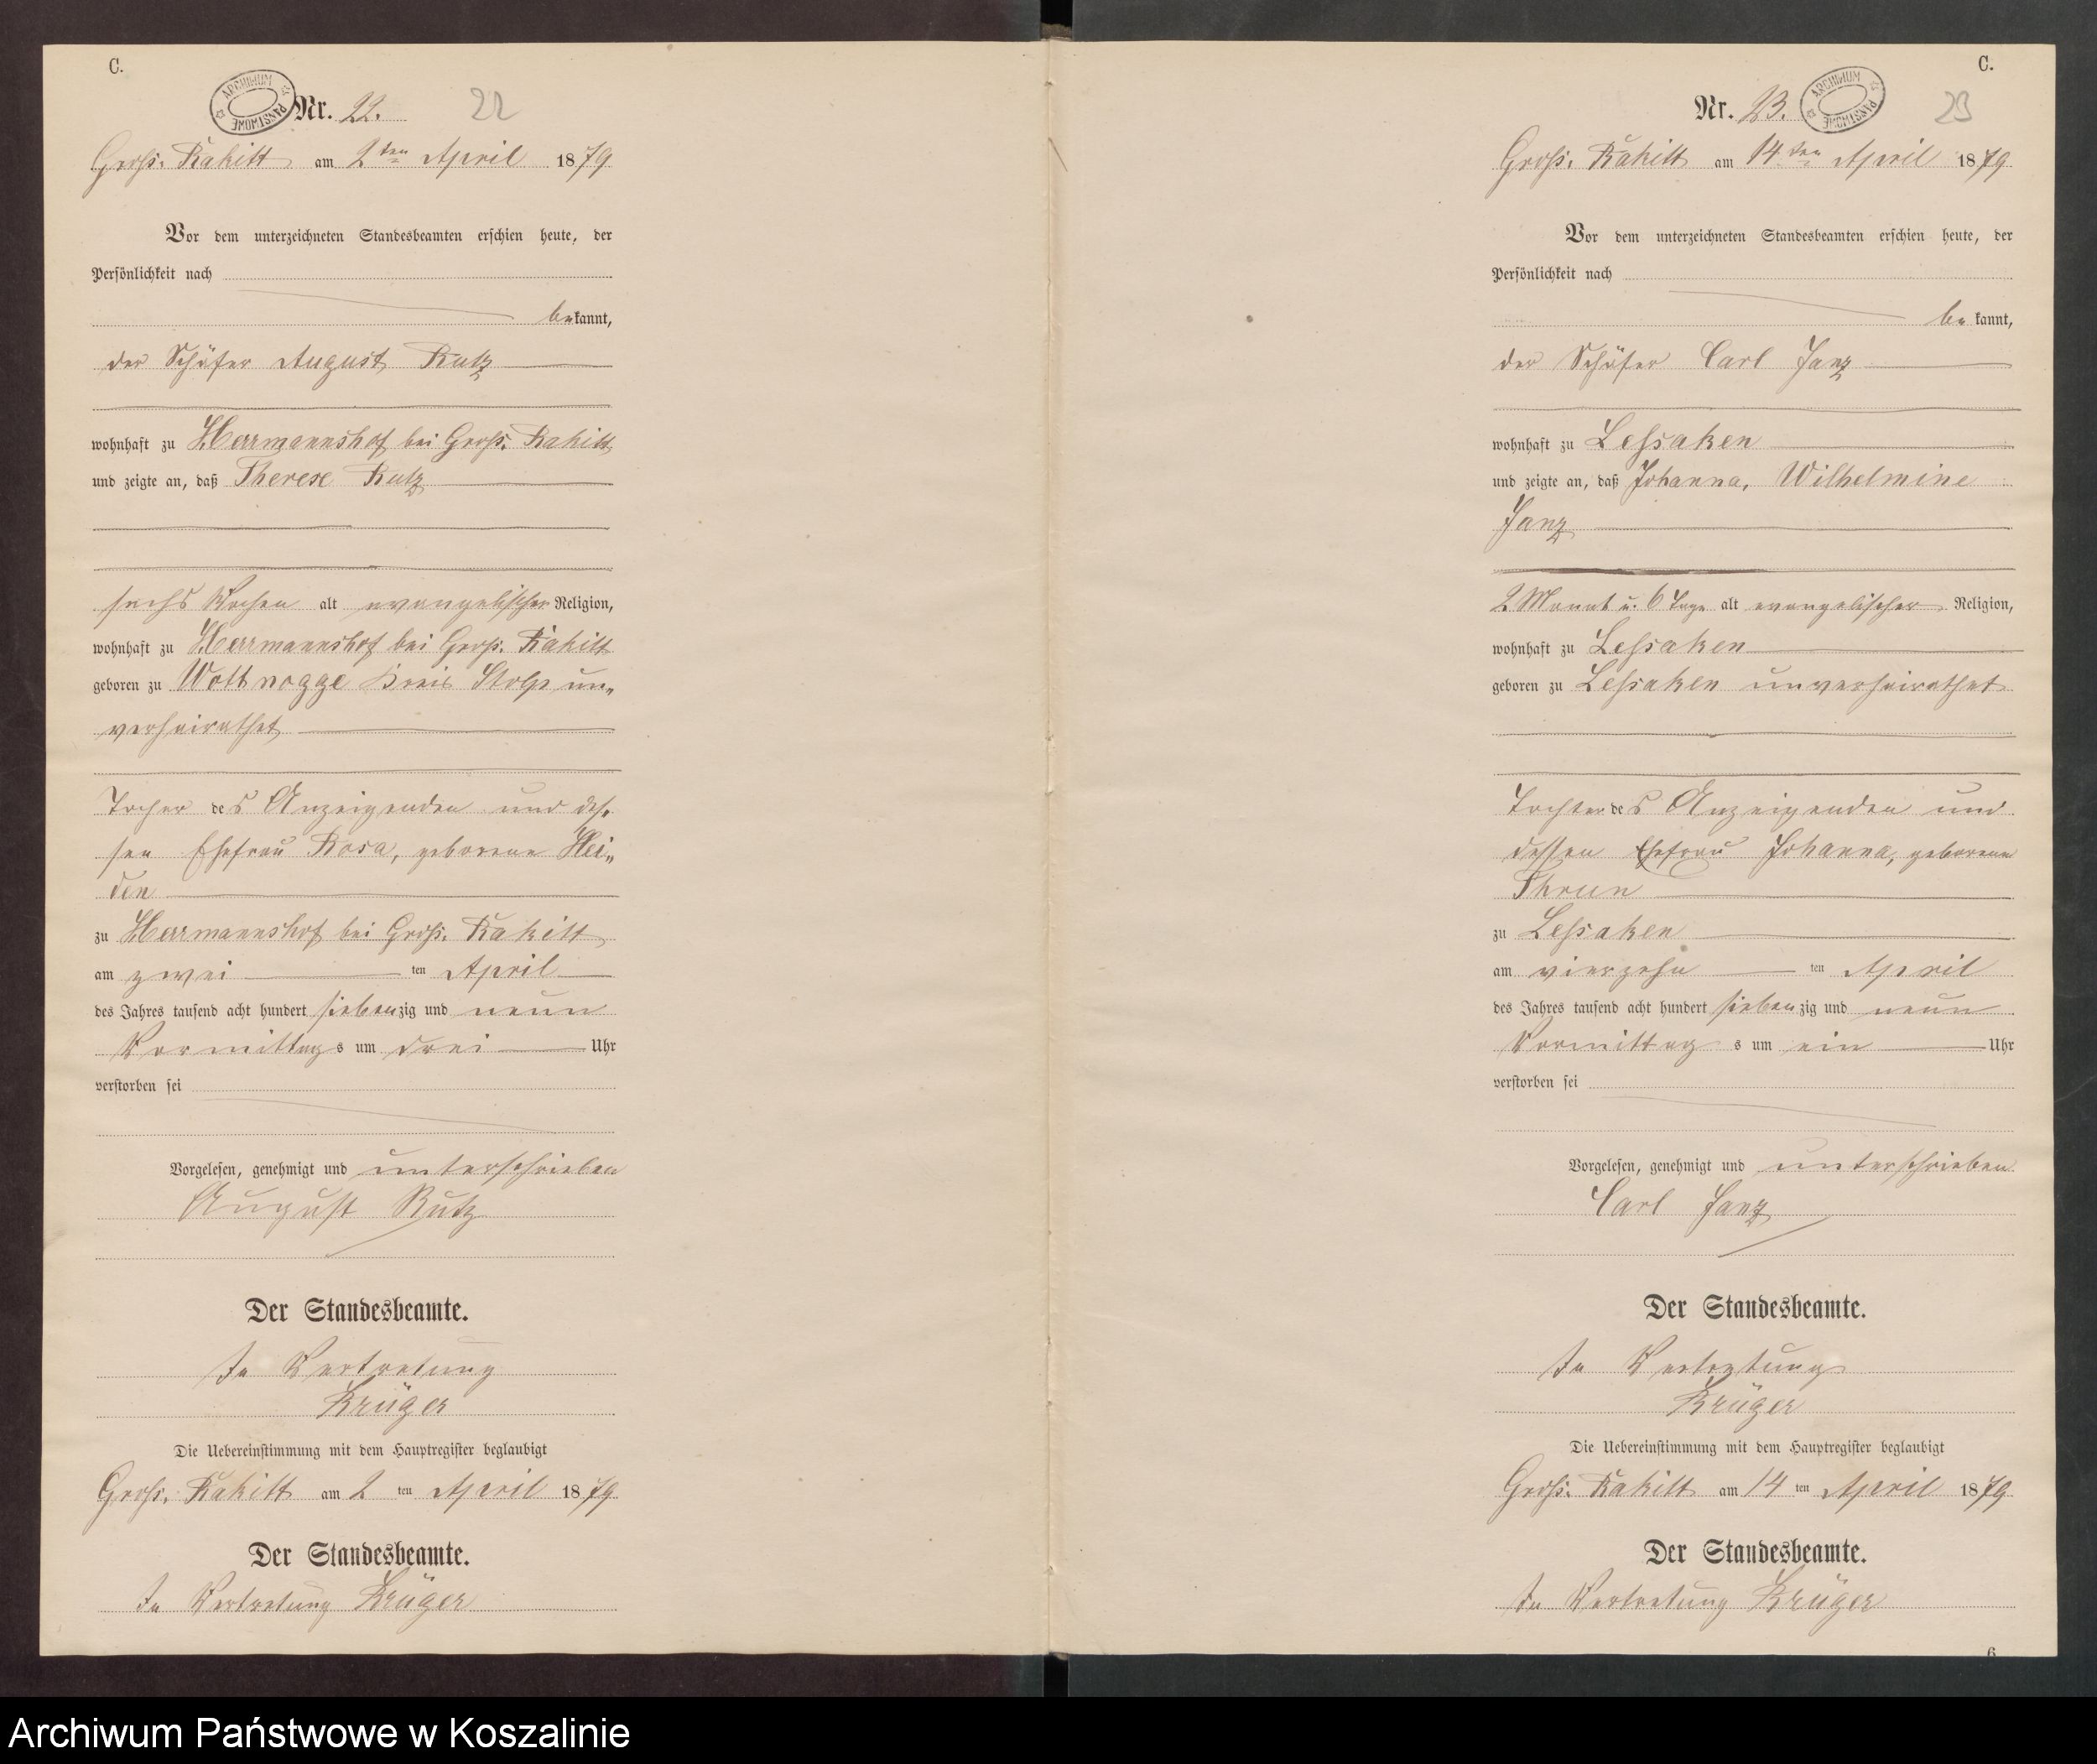 C.
ARCHIWUM PAŃSTWOWE
Nr. 22. 22
Groß. Rakitt am 2ten April 1879
Vor dem unterzeichneten Standesbeamten erschien heute, der
Persönlichkeit nach
bekannt,
der Schäfer August Rutz
wohnhaft zu Herrmannshof bei Groß. Rakitt
und zeigte an, daß Therese Rutz
sechs Wochen alt evangelischer Religion,
wohnhaft zu Herrmannshof bei Groß. Rakitt
geboren zu Wottnogge Kreis Stolp un„
verheirathet
Tocher des Anzeigenden und des„
sen Ehefrau Rosa, geborene Hei„
den
zu Herrmannshof bei Groß. Rakitt
am zwei ten April
des Jahres tausend acht hundert siebenzig und neun
Vormittags um drei Uhr
verstorben sei
Vorgelesen, genehmigt und unterschrieben
August Rutz
Der Standesbeamte.
In Vertretung
Krüger
Die Uebereinstimmung mit dem Hauptregister beglaubigt
Groß. Rakitt am 2 ten April 1879
Der Standesbeamte.
In Vertretung Krüger
C.
Nr. 23. 23
ARCHIWUM PAŃSTWOWE
Groß. Rakitt am 14ten April 1879
Vor dem unterzeichneten Standesbeamten erschien heute, der
Persönlichkeit nach
bekannt,
der Schäfer Carl Janz
wohnhaft zu Leßaken
und zeigte an, daß Johanna, Wilhelmine
Janz
2 Monat u. 6 Tage alt evangelischer Religion,
wohnhaft zu Leßaken
geboren zu Leßaken unverheirathet
Tochter des Anzeigenden und
dessen Ehefrau Johanna, geborene
Thrun
zu Leßaken
am vierzehn ten April
des Jahres tausend acht hundert siebenzig und neun
Vormittags um ein Uhr
verstorben sei
Vorgelesen, genehmigt und unterschrieben
Carl Janz
Der Standesbeamte.
In Vertretung
Krüger
Die Uebereinstimmung mit dem Hauptregister beglaubigt
Groß. Rakitt am 14 ten April 1879
Der Standesbeamte.
In Vertretung Krüger
6
Archiwum Państwowe w Koszalinie